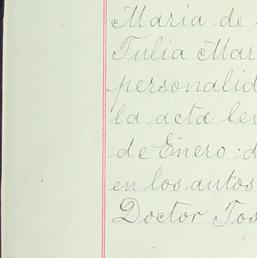 María de
Tulia Mar
personalid
la acta lev
de Enero: d
en los autos
Doctor Jos